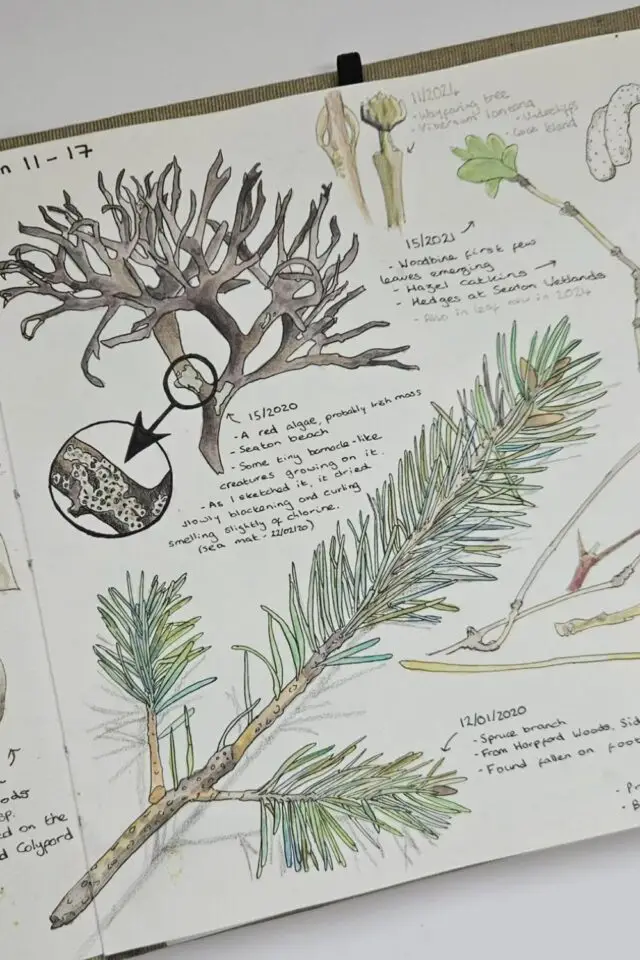 n 11-17
11/2024
- Wayfaring tree
- Viburnum lantana
15/2021
- Woodbine first few
leaves emerging
- Hazel catkins
- Hedges at Seaton Wetlands
- Also in leaf now in 2024
15/2020
- A red algae, probably Irish moss
- Seaton beach
- Some tiny barnacle-like
creatures growing on it.
- As I sketched it, it dried
slowly blackening and curling
smelling slightly of chlorine.
(sea mat - 22/02/20)
12/01/2020
- Spruce branch
- From Harpford Woods, Sid
- Found fallen on foot
- Pr
- B
ods
sp.
ed on the
d Colyford